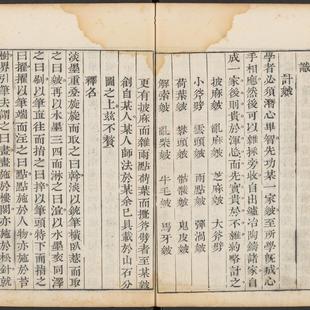 計皴
學者必須潛心畢智先功某一家皴至所學既成心
手相應然後可以雜採旁收自出爐冶陶鑄諸家自
成一家後則貴於渾忘而先實貴於不雜約略計之
披麻皴 亂麻皴 芝麻皴 大斧劈
小斧劈 雲頭皴 雨點皴 彈渦皴
荷葉皴 礬頭皴 骷髏皴 鬼皮皴
解索皴 亂柴皴 牛毛皴 馬牙皴
更有披麻而雜雨點荷葉而攪斧劈者至某皴
創自某人某人師法於某余已具載於山石分
圖之上茲不贅
釋名
淡墨重疊旋旋而取之曰斡淡以銳筆橫臥惹惹而取
之曰皴再以水墨三四而淋之曰渲以水墨袞同澤
之曰刷以筆直往而指之曰捽以筆頭特下而指之
曰擢擢以筆端而注之曰點點施於人物亦施於苔
樹界引筆去謂之曰畫畫施於樓閣亦施於松針就